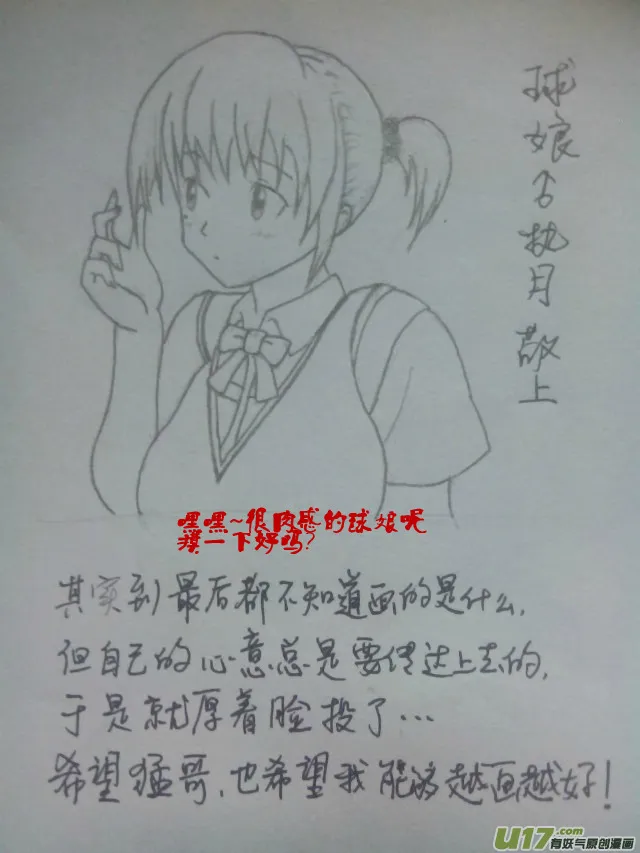 球娘
执月 敬上
嘿嘿~很肉感的球娘呢
摸一下好吗?
其实到最后都不知道画的是什么,
但自己的心意总是要传达上去的,
于是就厚着脸投了…
希望猛哥,也希望我能够越画越好!
U17.com
有妖气原创漫画